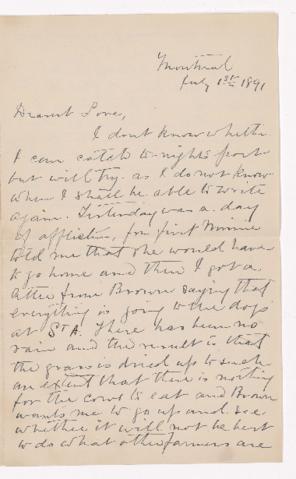 Montreal
July 1st 1891
Dearest Love,
I dont know whether
I can catch to-night's post
but will try. as I do not know
when I shall be able to write
again. Yesterday was a day
of affliction, for first Minnie
told me that she would have
to go home and then I got a
letter from Brown saying that
everything is going to the dogs
at St A. There has been no
rain and the result is that
the grass is dried up to such
an extent that there is nothing
for the cows to eat and Brown
wants me to go up and see
whether it will not be best
to do what other farmers are